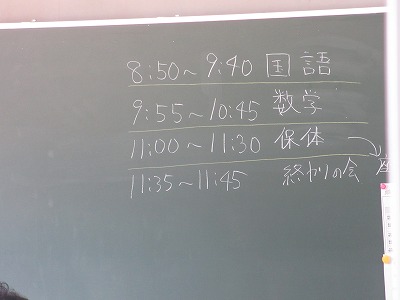 8:50~9:40 国語
9:55~10:45 数学
11:00~11:30 保体
11:35~11:45 終わりの会